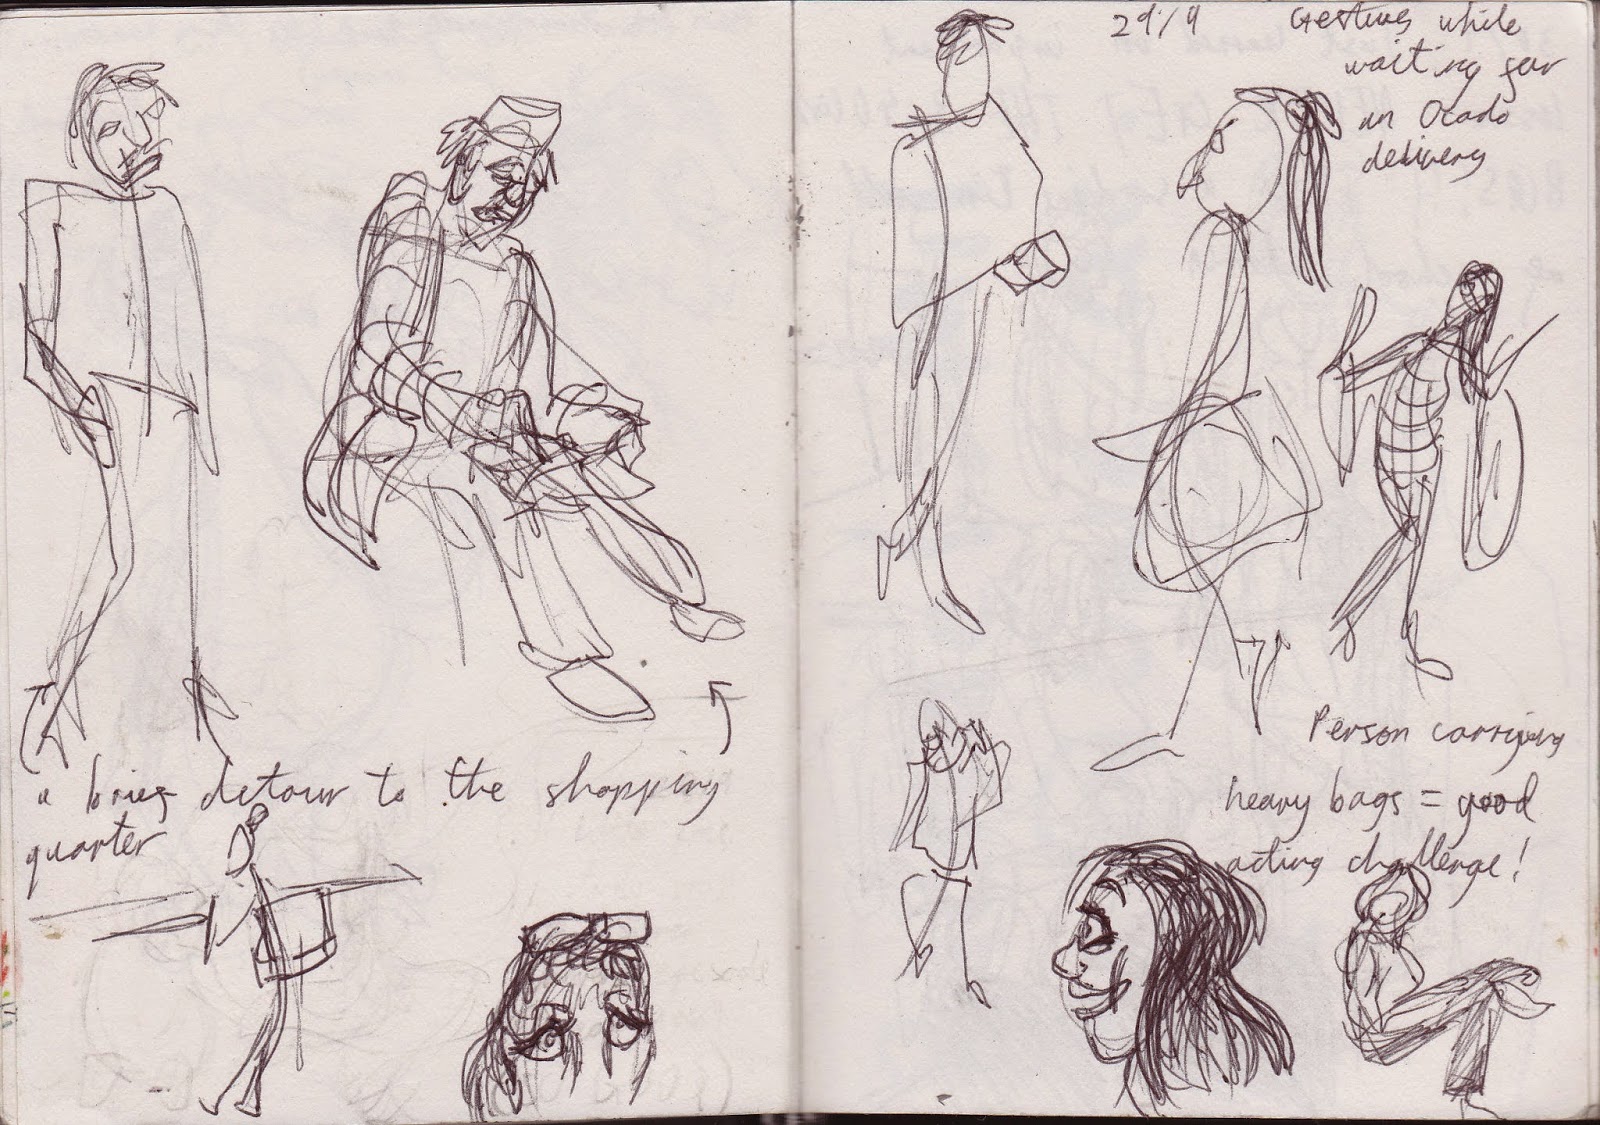 a brief detour to the shopping
quarter
29/9
Gestures while
waiting for
an Ocado
delivery
Person carrying
heavy bags = good
acting challenge!